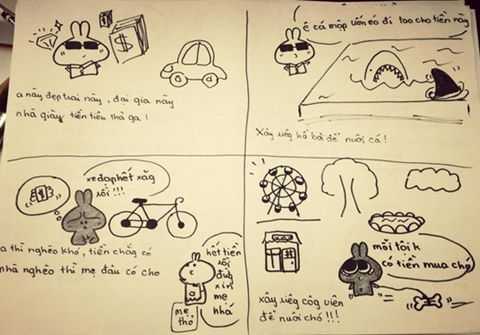 $
ê cá mập uốn éo đi tao cho tiền này
a này đẹp trai này, đại gia này
nhà giàu tiền tiêu thả ga !
xây riêg hồ bơi để nuôi cá !
xe đạp hết xăg
rồi !!!
$
a thì nghèo khó, tiền chẳg có
nhà nghèo thì mẹ đâu có cho
hết tiền
rồi
đừg
xin
mẹ
nhá
mẹ
thỏ
mỗi tội k
có tiền mua chó
xây riêg côg viên
để nuôi chó !!!